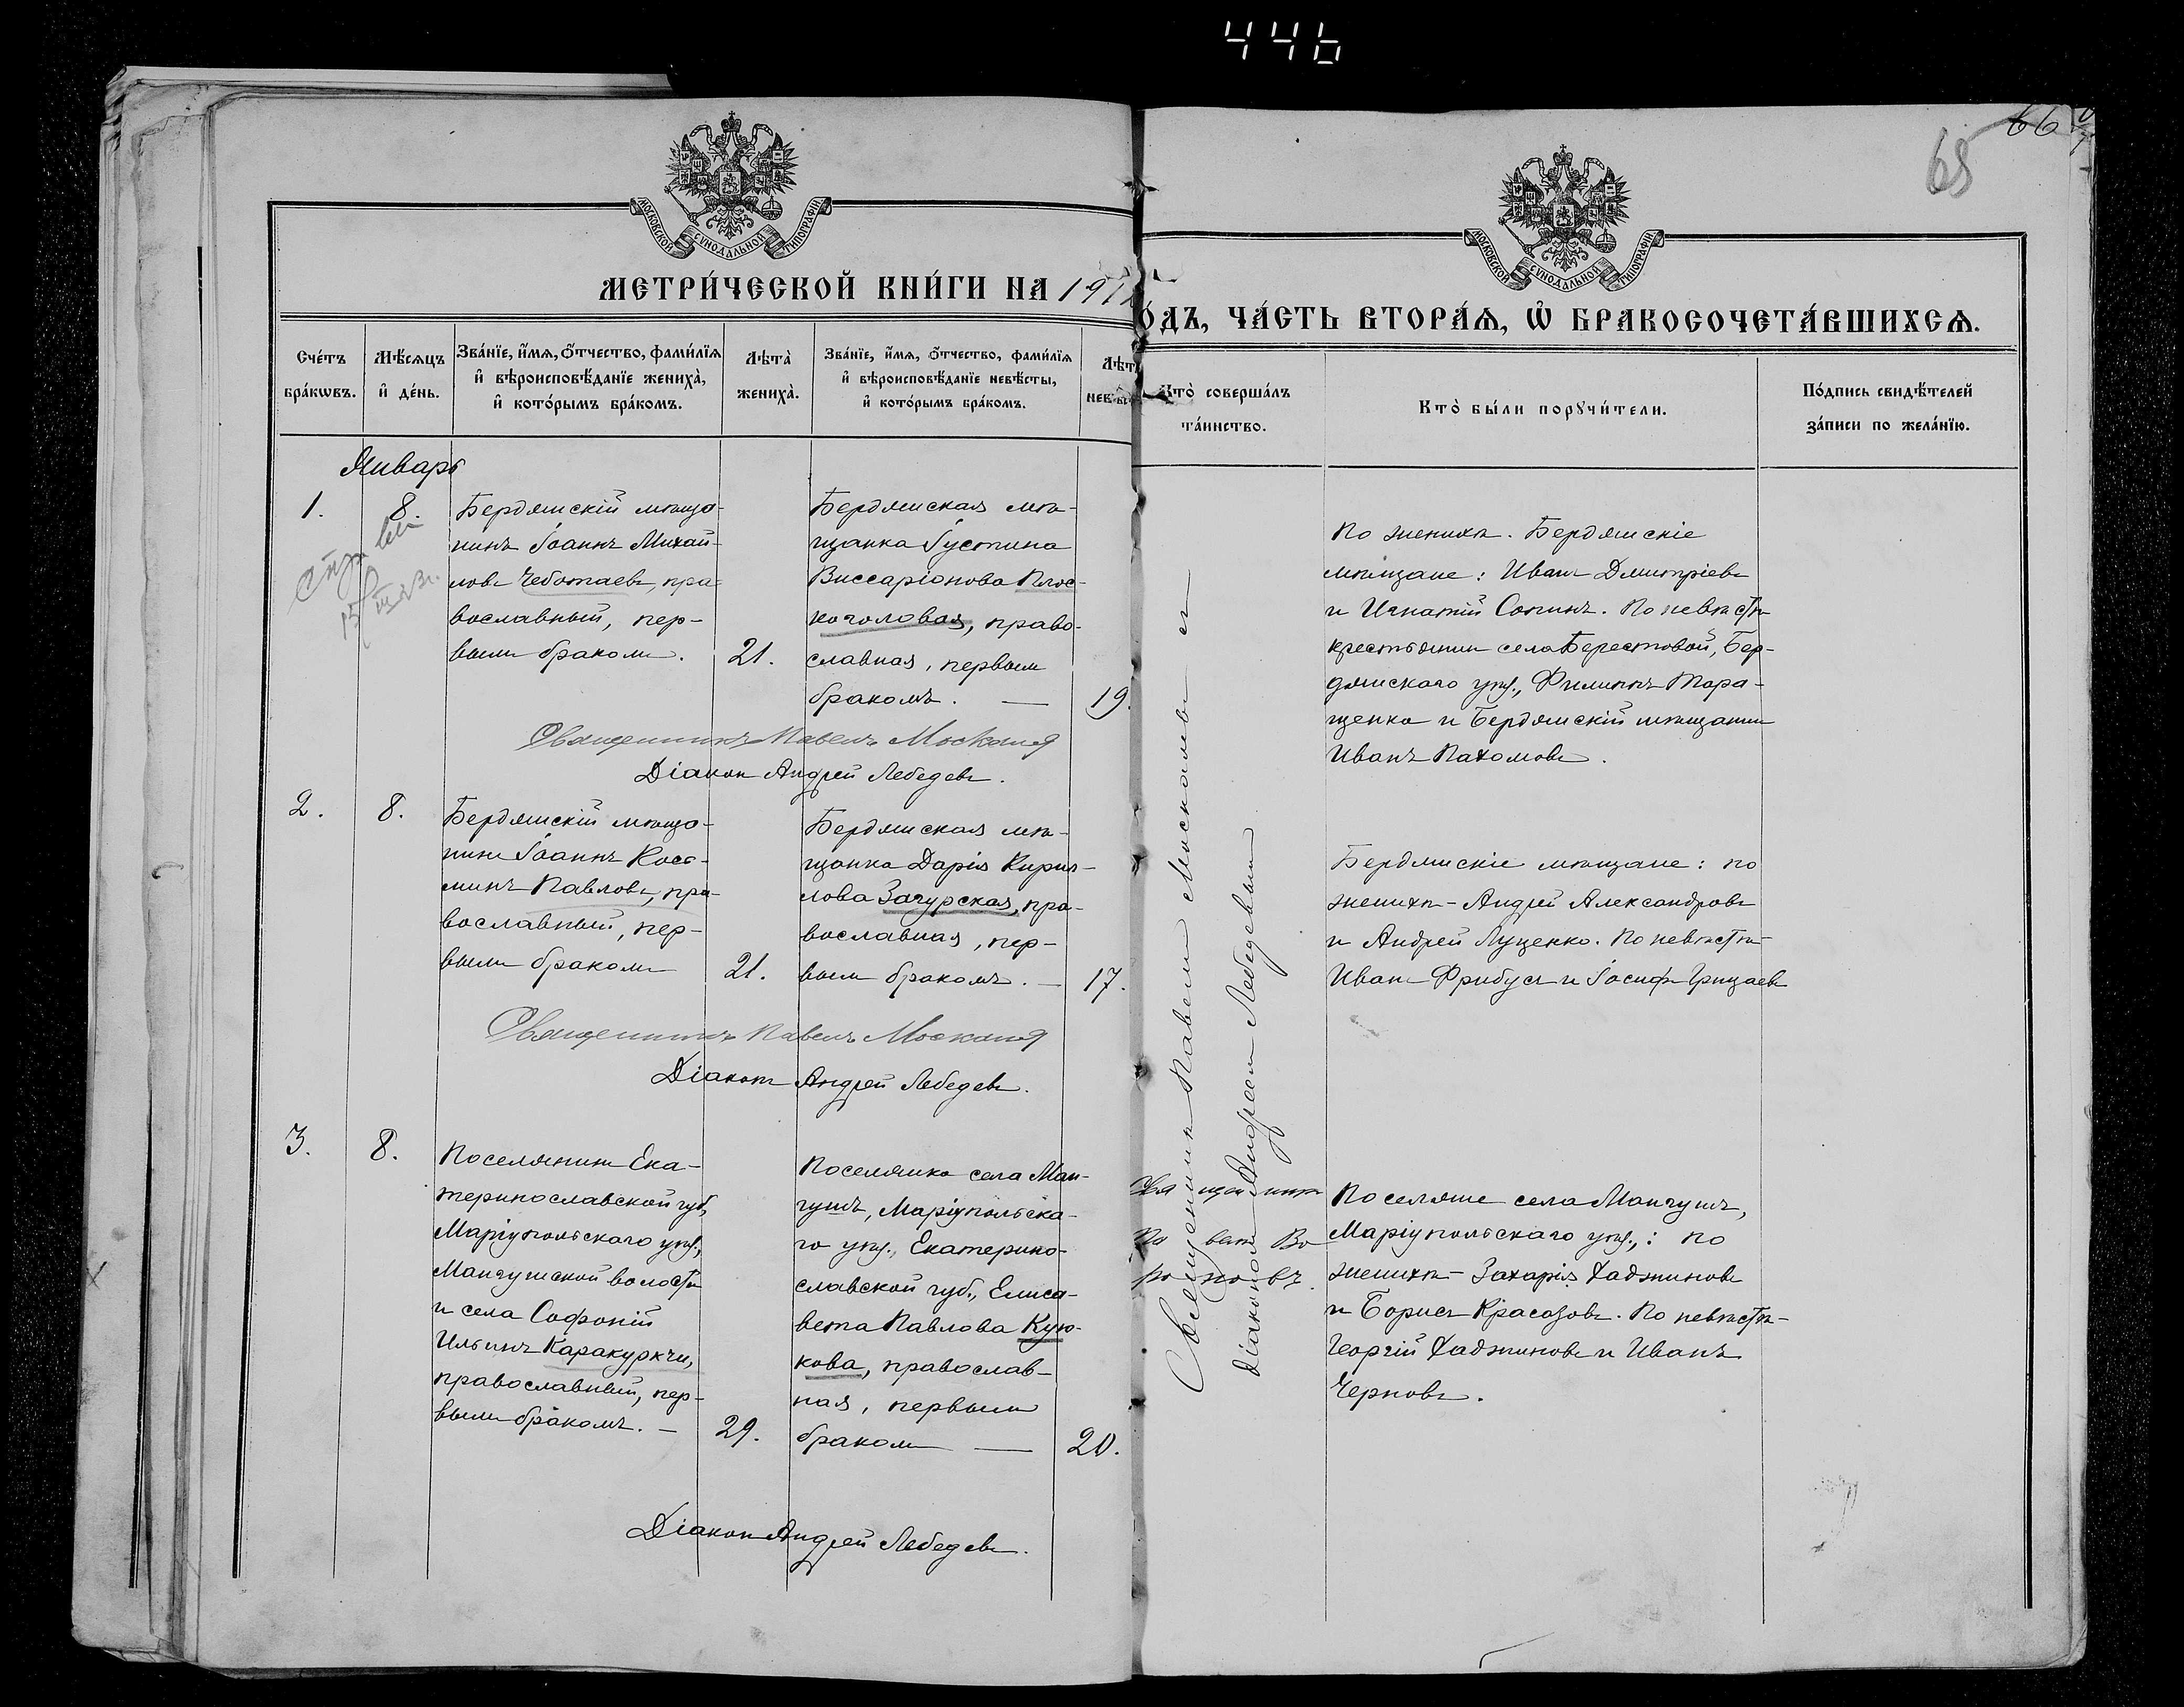 446
66
65
МОСКОВСКОЙ СѴНОДАЛЬНОЙ ТИПОГРАФІИ
МОСКОВСКОЙ СѴНОДАЛЬНОЙ ТИПОГРАФІИ
МЕТРИ́ЧЕСКОЙ КНИ́ГИ НА 191
О́ДЪ, ЧА́СТЬ ВТОРА́Ѧ, Ѽ БРАКОСОЧЕТА́ВШИХСѦ.
Сче́тъ бра́кѡвъ.
Мѣ́сѧцъ и҆ де́нь.
Зва́нїе, и҆́мѧ, ѻ҆́тчество, фами́лїѧ и҆ вѣроисповѣ́данїе жениха̀, и҆ кото́рымъ бра́комъ.
Лѣта̀ жениха̀.
Зва́нїе, и҆́мѧ, ѻ҆́тчество, фами́лїѧ и҆ вѣроисповѣ́данїе невѣ́сты, и҆ кото́рымъ бра́комъ.
Лѣт
невѣ
Кто̀ соверша́лъ та́инство.
Кто̀ бы́ли порꙋчи́тели.
По́дпись свидѣ́телей за́писи по жела́нїю.
Январь
1.
8.
Бердянскій мѣща-
нинъ Іоаннъ Михай-
ловъ Чеботаевъ, пра-
вославный, пер-
вымъ бракомъ.
21.
Бердянская мѣ-
щанка Іустина
Виссаріонова Плос-
коголовая, право-
славная, первымъ
бракомъ. —
19.
По женихѣ. Бердянскіе
мѣщане: Иванъ Дмитріевъ
и Игнатій Сопинъ. По невѣстѣ
крестьянинъ села Берестовой, Бер-
дянскаго уѣз., Филиппъ Тара-
щенко и Бердянскій мѣщанинъ
Иванъ Пахомовъ.
Священникъ Павелъ Москалев
Діаконъ Андрей Лебедевъ.
2.
8.
Бердянскій мѣща-
нинъ Іоаннъ Косьт-
минъ Павловъ, пра-
вославный, пер-
вымъ бракомъ
21.
Бердянская мѣ-
щанка Дарія Кирил-
лова Загурская, пра-
вославная, пер-
вымъ бракомъ. —
17.
Бердянскіе мѣщане: по
женихѣ - Андрей Александровъ
и Андрей Луценко. По невѣстѣ -
Иванъ Фрибусъ и Іосифъ Грицаевъ
Священникъ Павелъ Москалев
Діаконъ Андрей Лебедевъ.
3.
8.
Поселянинъ Ека-
теринославской губ.,
Маріупольскаго уѣз.,
Мангушской волости
и села Софроній
Ильинъ Каракуркчи,
православный, пер-
вымъ бракомъ. —
29.
Поселянка села Ман-
гушъ, Маріупольска-
го уѣз., Екатерино-
славской губ., Елиса-
вета Павлова Кую-
кова, православ-
ная, первымъ
бракомъ —
20.
Священникъ Павелъ Москалевъ съ
діакономъ Андреемъ Лебедевымъ
Поселяне села Мангушъ,
Маріупольскаго уѣз.,: по
женихѣ - Захарія Хаджиновъ
и Борисъ Красозовъ. По невѣстѣ -
Георгій Хаджиновъ и Иванъ
Черновъ.
Діаконъ Андрей Лебедевъ.